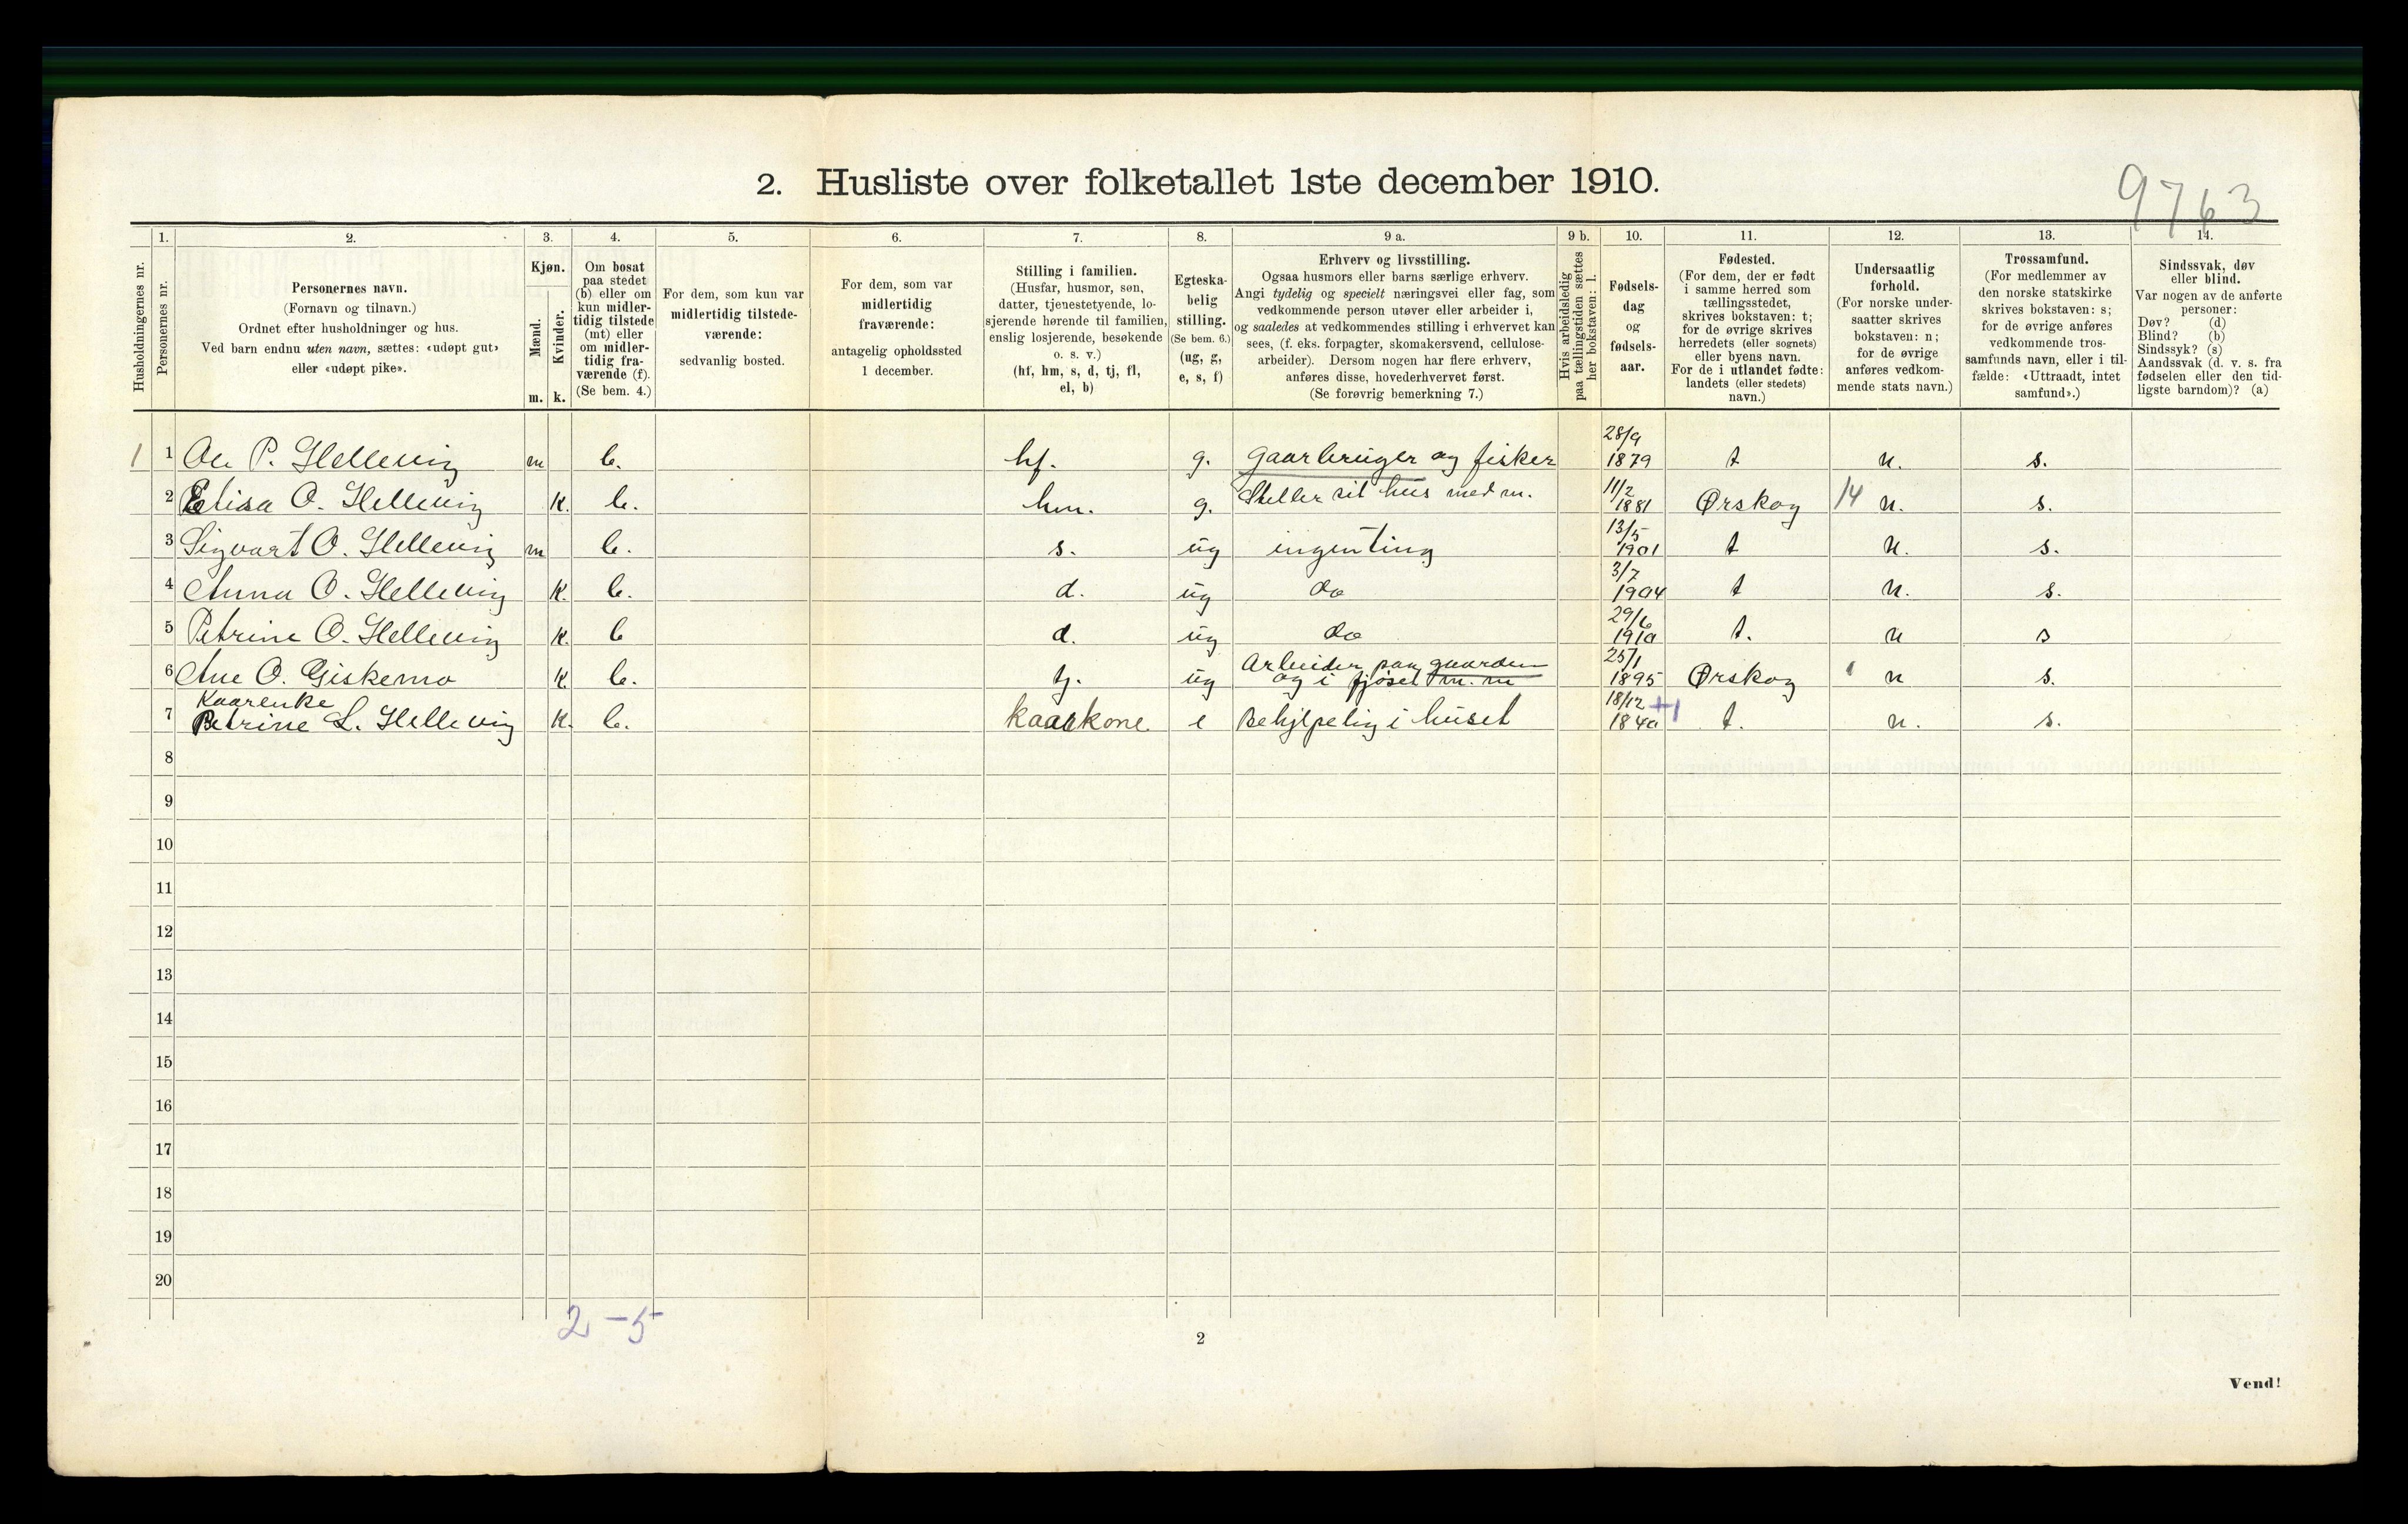 2. Husliste over folketallet 1ste december 1910.
9763
1. 2. 3. 4. 5. 6. 7. 8. 9 a. 9 b. 10. 11. 12. 13. 14.
Husholdningernes nr.
Personernes nr.
Personernes navn.
(Fornavn og tilnavn.)
Ordnet efter husholdninger og hus.
Ved barn endnu uten navn, sættes: «udøpt gut»
eller «udøpt pike».
Kjøn.
Mænd.
Kvinder.
m. k.
Om bosat
paa stedet
(b) eller om
kun midler-
tidig tilstede
(mt) eller
om midler-
tidig fra-
værende (f).
(Se bem. 4.)
For dem, som kun var
midlertidig tilstede-
værende:
sedvanlig bosted.
For dem, som var
midlertidig
fraværende:
antagelig opholdssted
1 december.
Stilling i familien.
(Husfar, husmor, søn,
datter, tjenestetyende, lo-
sjerende hørende til familien,
enslig losjerende, besøkende
o. s. v.)
(hf, hm, s, d, tj, fl,
el, b)
Egteska-
belig
stilling.
(Se bem. 6.)
(ug, g,
e, s, f)
Erhverv og livsstilling.
Ogsaa husmors eller barns særlige erhverv.
Angi tydelig og specielt næringsvei eller fag, som
vedkommende person utøver eller arbeider i,
og saaledes at vedkommendes stilling i erhvervet kan
sees, (f. eks. forpagter, skomakersvend, cellulose-
arbeider). Dersom nogen har flere erhverv,
anføres disse, hovederhvervet først.
(Se forøvrig bemerkning 7.)
Hvis arbeidsledig
paa tællingstiden sættes
her bokstaven: l.
Fødsels-
dag
og
fødsels-
aar.
Fødested.
(For dem, der er født
i samme herred som
tællingsstedet,
skrives bokstaven: t;
for de øvrige skrives
herredets (eller sognets)
eller byens navn.
For de i utlandet fødte:
landets (eller stedets)
navn.)
Undersaatlig
forhold.
(For norske under-
saatter skrives
bokstaven: n;
for de øvrige
anføres vedkom-
mende stats navn.)
Trossamfund.
(For medlemmer av
den norske statskirke
skrives bokstaven: s;
for de øvrige anføres
vedkommende tros-
samfunds navn, eller i til-
fælde: «Uttraadt, intet
samfund».)
Sindssvak, døv
eller blind.
Var nogen av de anførte
personer:
Døv? (d)
Blind? (b)
Sindssyk? (s)
Aandssvak (d. v. s. fra
fødselen eller den tid-
ligste barndom)? (a)
1 1 P. Hellevig m b. hf. g. gaarbruger og fisker 28/9 1879 t n. s.
2 Elisa O. Hellevig K. b. hm. g. Steller sit hus med m. 11/2 1881 Ørskog 14 n. s.
3 Sigvart O. Hellevig m b. s. ug ingenting 13/5 1901 t n. s.
4 Anna O. Hellevig K. b. d. ug do 3/7 1904 t n. s.
5 Petrine O. Hellevig K. b d. ug do 29/6 1910 t. n s
6 Ane O. Giskemo K. b. tj. ug Arbeider paa gaarden
og i fjøset m. m 25/1 1895 Ørskog n s.
Kaarenke
7 Petrine L. Hellevig K. b. kaarkone e Behjelpelig i huset 18/12 1840 +1 t. n. s.
8
9
10
11
12
13
14
15
16
17
18
19
20
2 - 5
2
Vend!